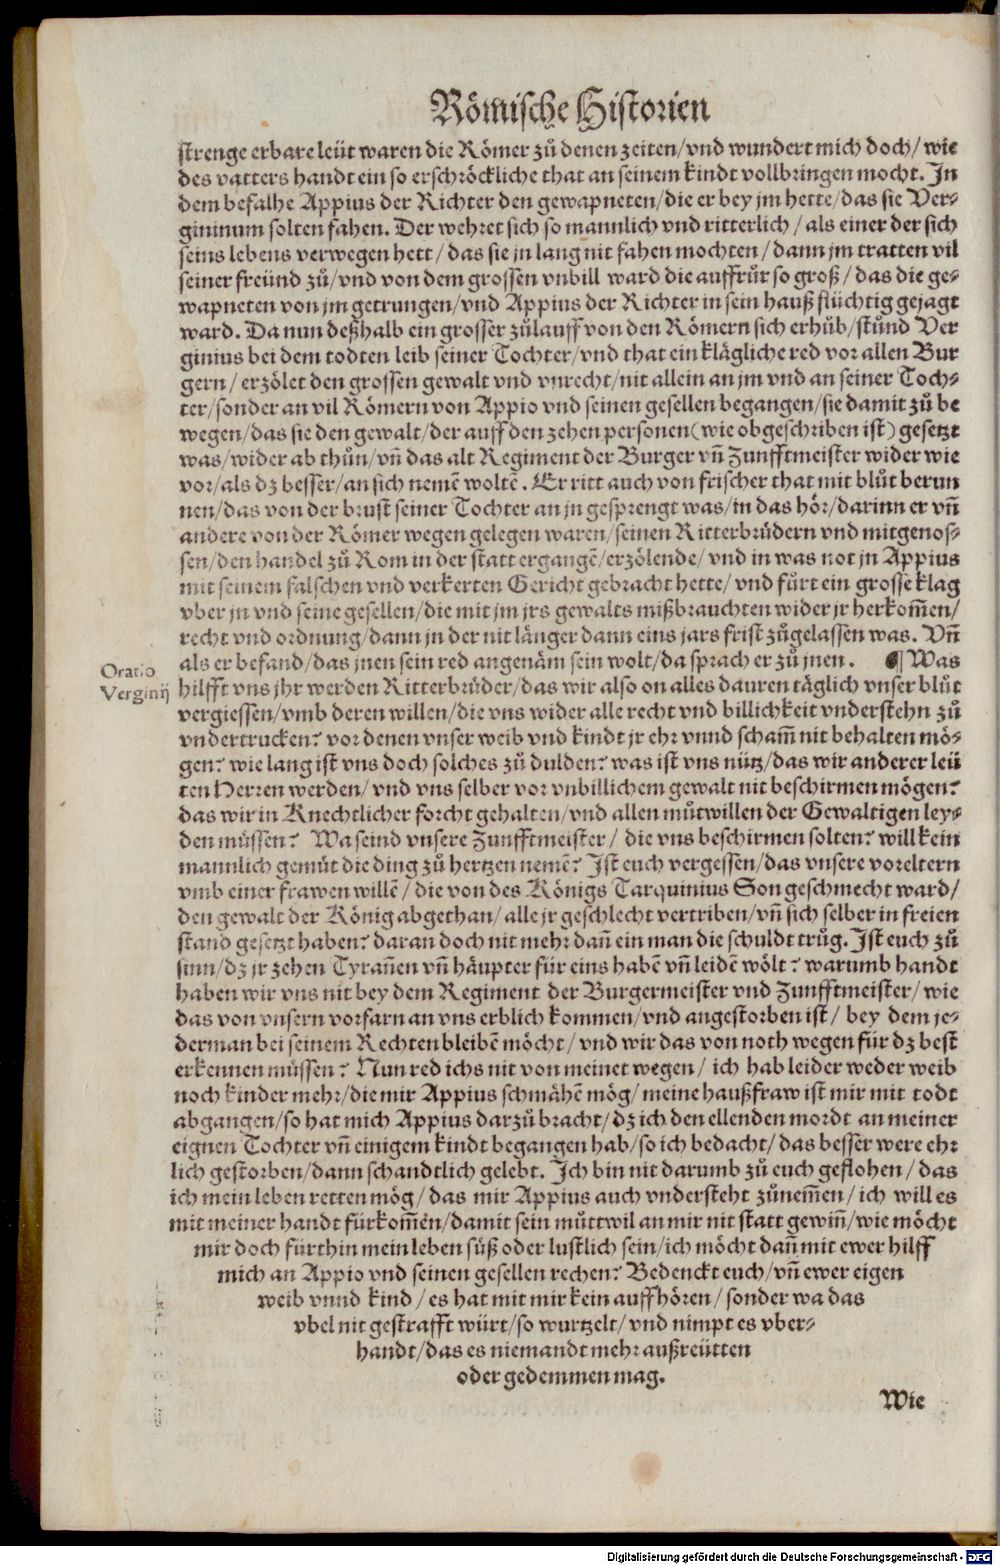 Römische Historien
strenge erbare leüt waren die Römer zů denen zeiten/vnd wundert mich doch/ wie
des vatters handt ein so erschröckliche that an seinem kindt vollbringen mocht. In
dem befalhe Appius der Richter den gewapneten/die er bey jm hette/das sie Ver-
gininum solten fahen. Der wehret sich so mannlich vnd ritterlich / als einer der sich
seins lebens verwegen hett / das sie jn lang nit fahen mochten / dann jm tratten vil
seiner freünd zů/vnd von dem grossen vnbill ward die auffrůr so groß / das die ge-
wapneten von jm getrungen/vnd Appius der Richter in sein hauß flüchtig gejagt
ward. Da nun deßhalb ein grosser zůlauff von den Römern sich erhůb/stůnd Ver
ginius bei dem todten leib seiner Tochter/vnd that ein klägliche red vor allen Bur
gern/ erzölet den grossen gewalt vnd vnrecht/nit allein an jm vnd an seiner Toch-
ter/sonder an vil Römern von Appio vnd seinen gesellen begangen/sie damit zů be
wegen/das sie den gewalt/der auff den zehen personen (wie obgeschriben ist) gesetzt
was/wider ab thůn/vn̄ das alt Regiment der Burger vn̄ Zunfftmeister wider wie
vor/als dz besser/an sich nemē woltē. Er ritt auch von frischer that mit blůt berun
nen/das von der brust seiner Tochter an jn gesprengt was/in das hör/darinn er vn̄
andere von der Römer wegen gelegen waren/seinen Ritterbrüdern vnd mitgenos-
sen/den handel zů Rom in der statt ergangē/erzölende/ vnd in was not jn Appius
mit seinem falschen vnd verkerten Gericht gebracht hette/ vnd fůrt ein grosse klag
vber jn vnd seine gesellen/die mit jm jrs gewalts mißbrauchten wider jr herkom̄en/
recht vnd ordnung/dann jn der nit länger dann eins jars frist zůgelassen was. Vn̄
als er befand/das jnen sein red angenäm sein wolt/da sprach er zů jnen. ¶ Was
Oratio
Verginij
hilfft vns jhr werden Ritterbrüder/das wir also on alles dauren täglich vnser blůt
vergiessen/vmb deren willen/die vns wider alle recht vnd billichkeit vnderstehn zů
vndertrucken? vor denen vnser weib vnd kindt jr ehr vnnd scham̄ nit behalten mö-
gen? wie lang ist vns doch solches zů dulden? was ist vns nütz/das wir anderer leü
ten Herren werden/ vnd vns selber vor vnbillichem gewalt nit beschirmen mögen?
das wir in Knechtlicher forcht gehalten/vnd allen můtwillen der Gewaltigen ley-
den müssen? Wa seind vnsere Zunfftmeister / die vns beschirmen solten? will kein
mannlich gemüt die ding zů hertzen nemē? Ist euch vergessen/das vnsere voreltern
vmb einer frawen willē / die von des Königs Tarquinius Son geschmecht ward/
den gewalt der König abgethan/ alle jr geschlecht vertriben/vn̄ sich selber in freien
stand gesetzt haben? daran doch nit mehr dan̄ ein man die schuldt trůg. Ist euch zů
sinn/dz jr zehen Tyran̄en vn̄ häupter für eins habē vn̄ leidē wölt? warumb handt
haben wir vns nit bey dem Regiment der Burgermeister vnd Zunfftmeister/ wie
das von vnsern vorfarn an vns erblich kommen/vnd angestorben ist/ bey dem je-
derman bei seinem Rechten bleibē möcht/ vnd wir das von noth wegen für dz best
erkennen müssen? Nun red ichs nit von meinet wegen/ ich hab leider weder weib
noch kinder mehr/die mir Appius schmähē mög/ meine haußfraw ist mir mit todt
abgangen/so hat mich Appius darzů bracht/ dz ich den ellenden mordt an meiner
eignen Tochter vn̄ einigem kindt begangen hab/so ich bedacht/ das besser were ehr
lich gestorben/dann schandtlich gelebt. Ich bin nit darumb zů euch geflohen / das
ich mein leben retten mög/ das mir Appius auch vndersteht zůnem̄en/ ich will es
mit meiner handt fürkom̄en/damit sein můttwil an mir nit statt gewin̄/wie möcht
mir doch fürthin mein leben süß oder lustlich sein/ich möcht dan̄ mit ewer hilff
mich an Appio vnd seinen gesellen rechen? Bedenckt euch/vn̄ ewer eigen
weib vnnd kind / es hat mit mir kein auffhören/ sonder wa das
vbel nit gestrafft würt/so wurtzelt/ vnd nimpt es vber-
handt/das es niemandt mehr außreütten
oder gedemmen mag.
Wie
Digitalisierung gefördert durch die Deutsche Forschungsgemeinschaft - DFG